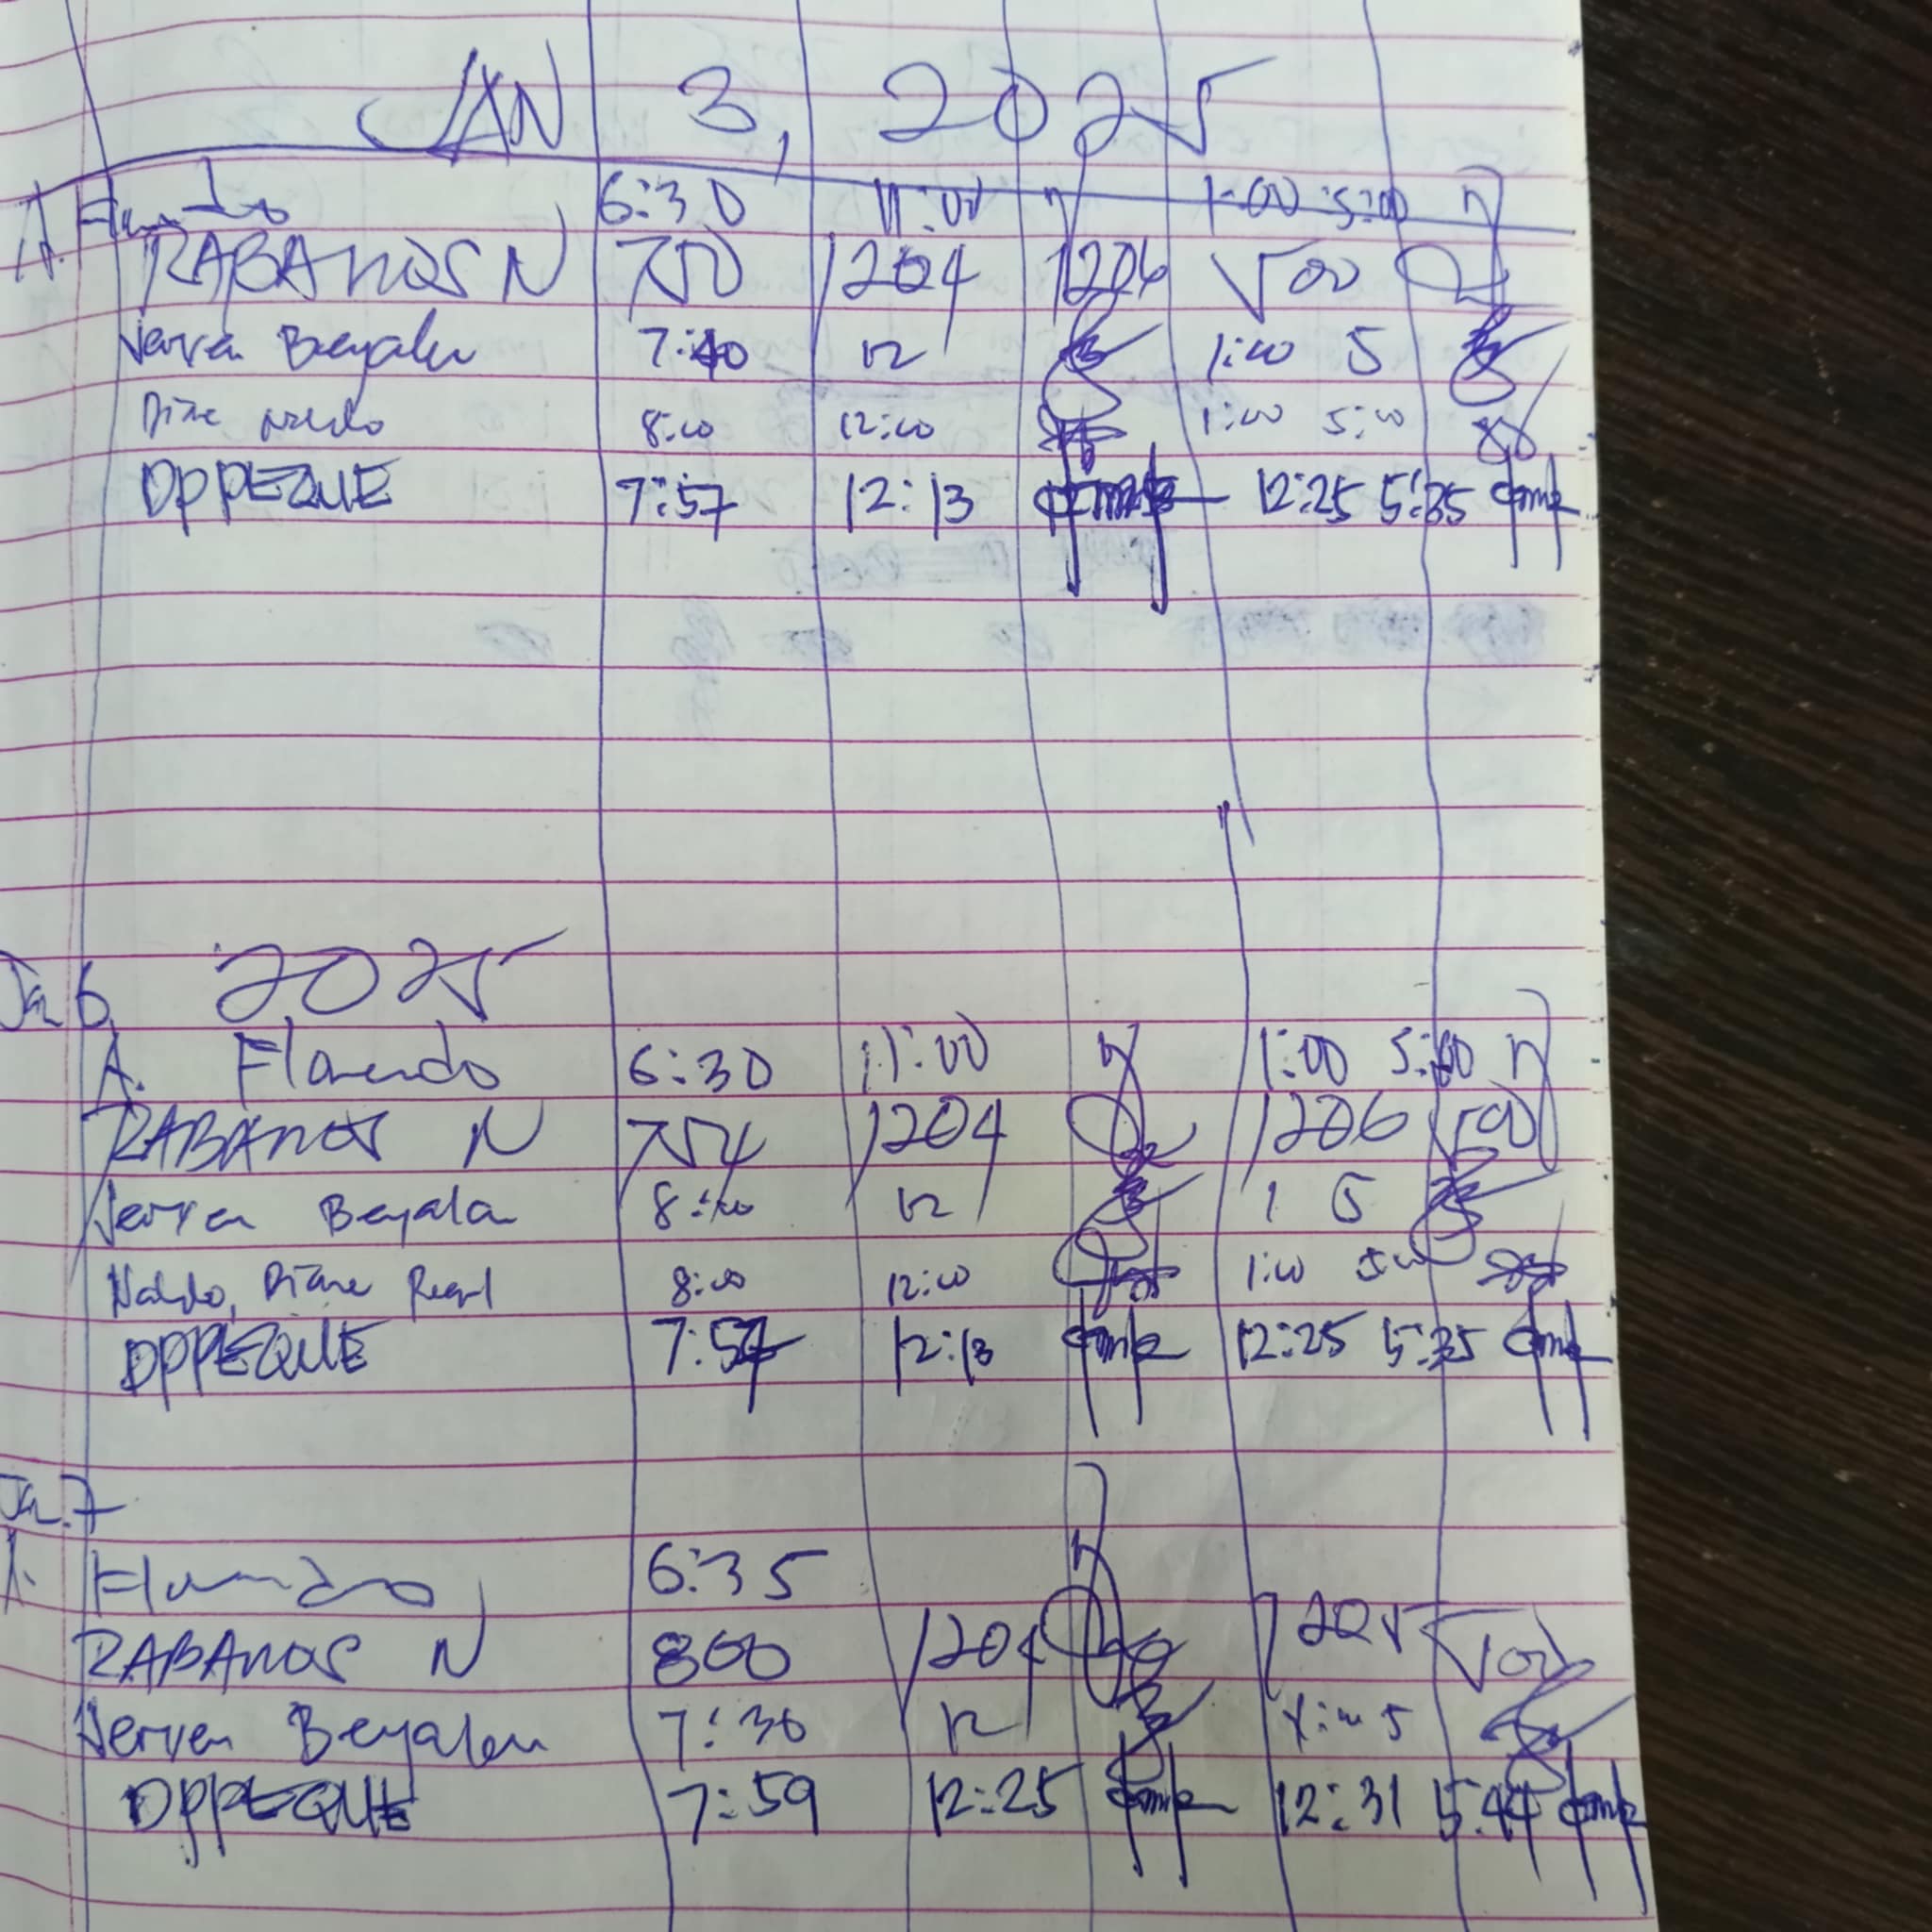 JAN 3, 2025
A. Flurendo 6:30 11:00 1:00 5:00
RABANOS N 750 1204 1206 500
Verven Beyalen 7:40 12 1:00 5
Diane Naldo 8:00 12:00 1:00 5:00
DPPEQUE 7:57 12:13 12:25 5:35
Ja 6, 2025
A. Florendo 6:30 11:00 1:00 5:00
RABANOS N 754 1204 1206 500
Verven Beyalen 8:00 12 1 5
Naldo, Diane 8:00 12:00 1:00 5:00
DPPEQUE 7:57 12:13 12:25 5:35
Ja. 7
A. Flurendo 6:35
RABANOS N 800 1204 1205 500
Verven Beyalen 7:30 12 1:00 5
DPPEQUE 7:59 12:25 12:31 5:44